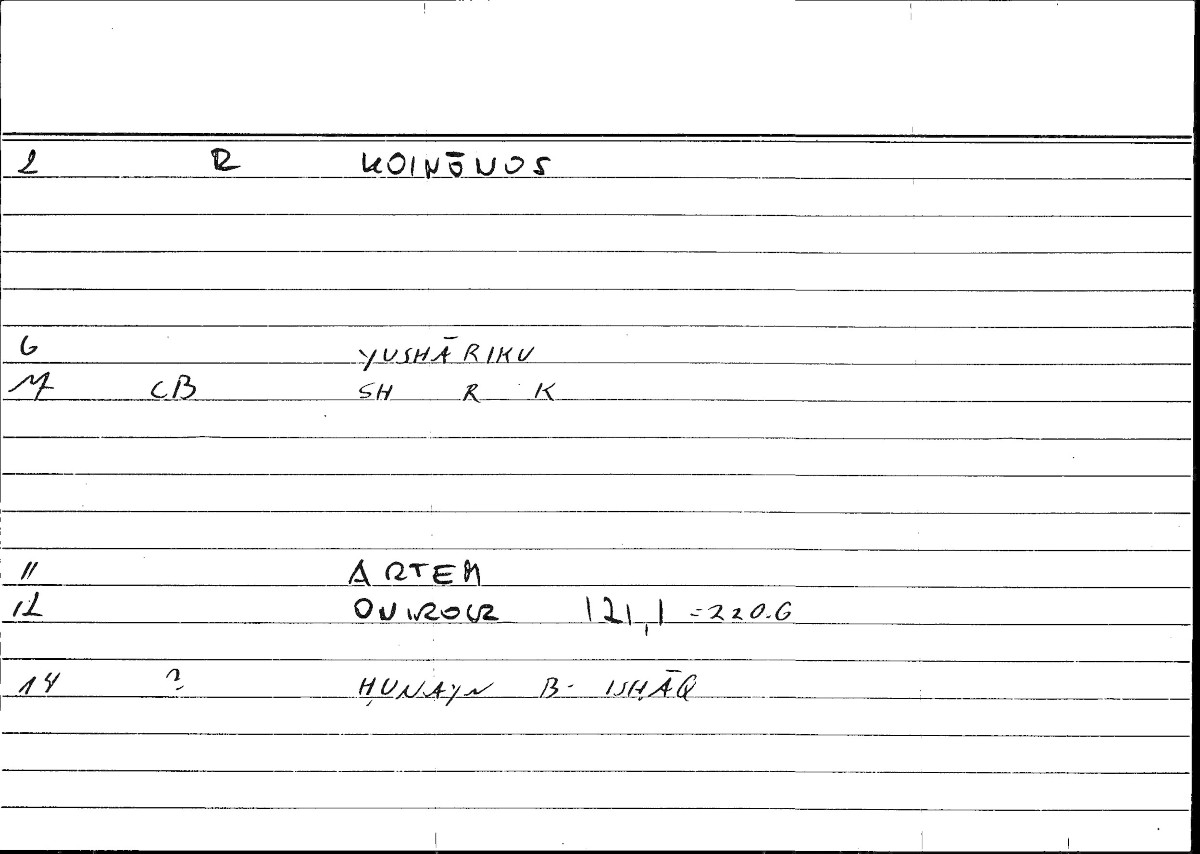 2 R KOINŌNOS
6 YUSHĀRIKU
M CB SH R K
11 ARTEM
12 ONIROCR 121,1 =220.6
14 ? ḤUNAYN B- ISḤĀQ